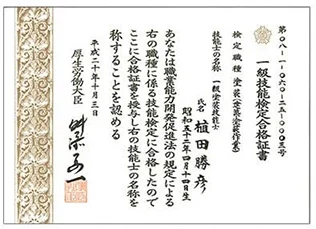 第〇八-一-〇六〇-二五-〇〇〇三号
一級技能検定合格証書
検定職種 塗装(金属塗装作業)
技能士の名称 一級塗装技能士
氏名 植田勝彦
昭和五十二年四月十四日生
あなたは職業能力開発促進法の規定による
右の職種に係る技能検定に合格したので
ここに合格証書を授与し右の技能士の名称を
称することを認める
平成二十年十月三日
厚生労働大臣